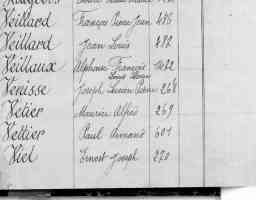 Veillard François Pierre Jean 486
Veillard Jean Louis 482
Veillaux Alphonse François 1422
Louis
Venisse Joseph Lucien Pierre 268
Vétier Maurice Alfred 269
Vettier Paul Armand 601
Viel Ernest Joseph 270